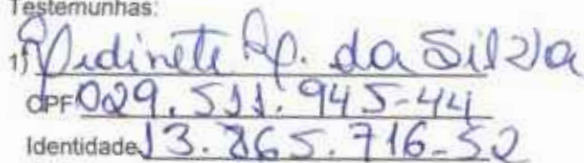 Testemunhas:
1) Valdinete Ap. da Silva
CPF 029.511.945-44
Identidade 13.865.716-52